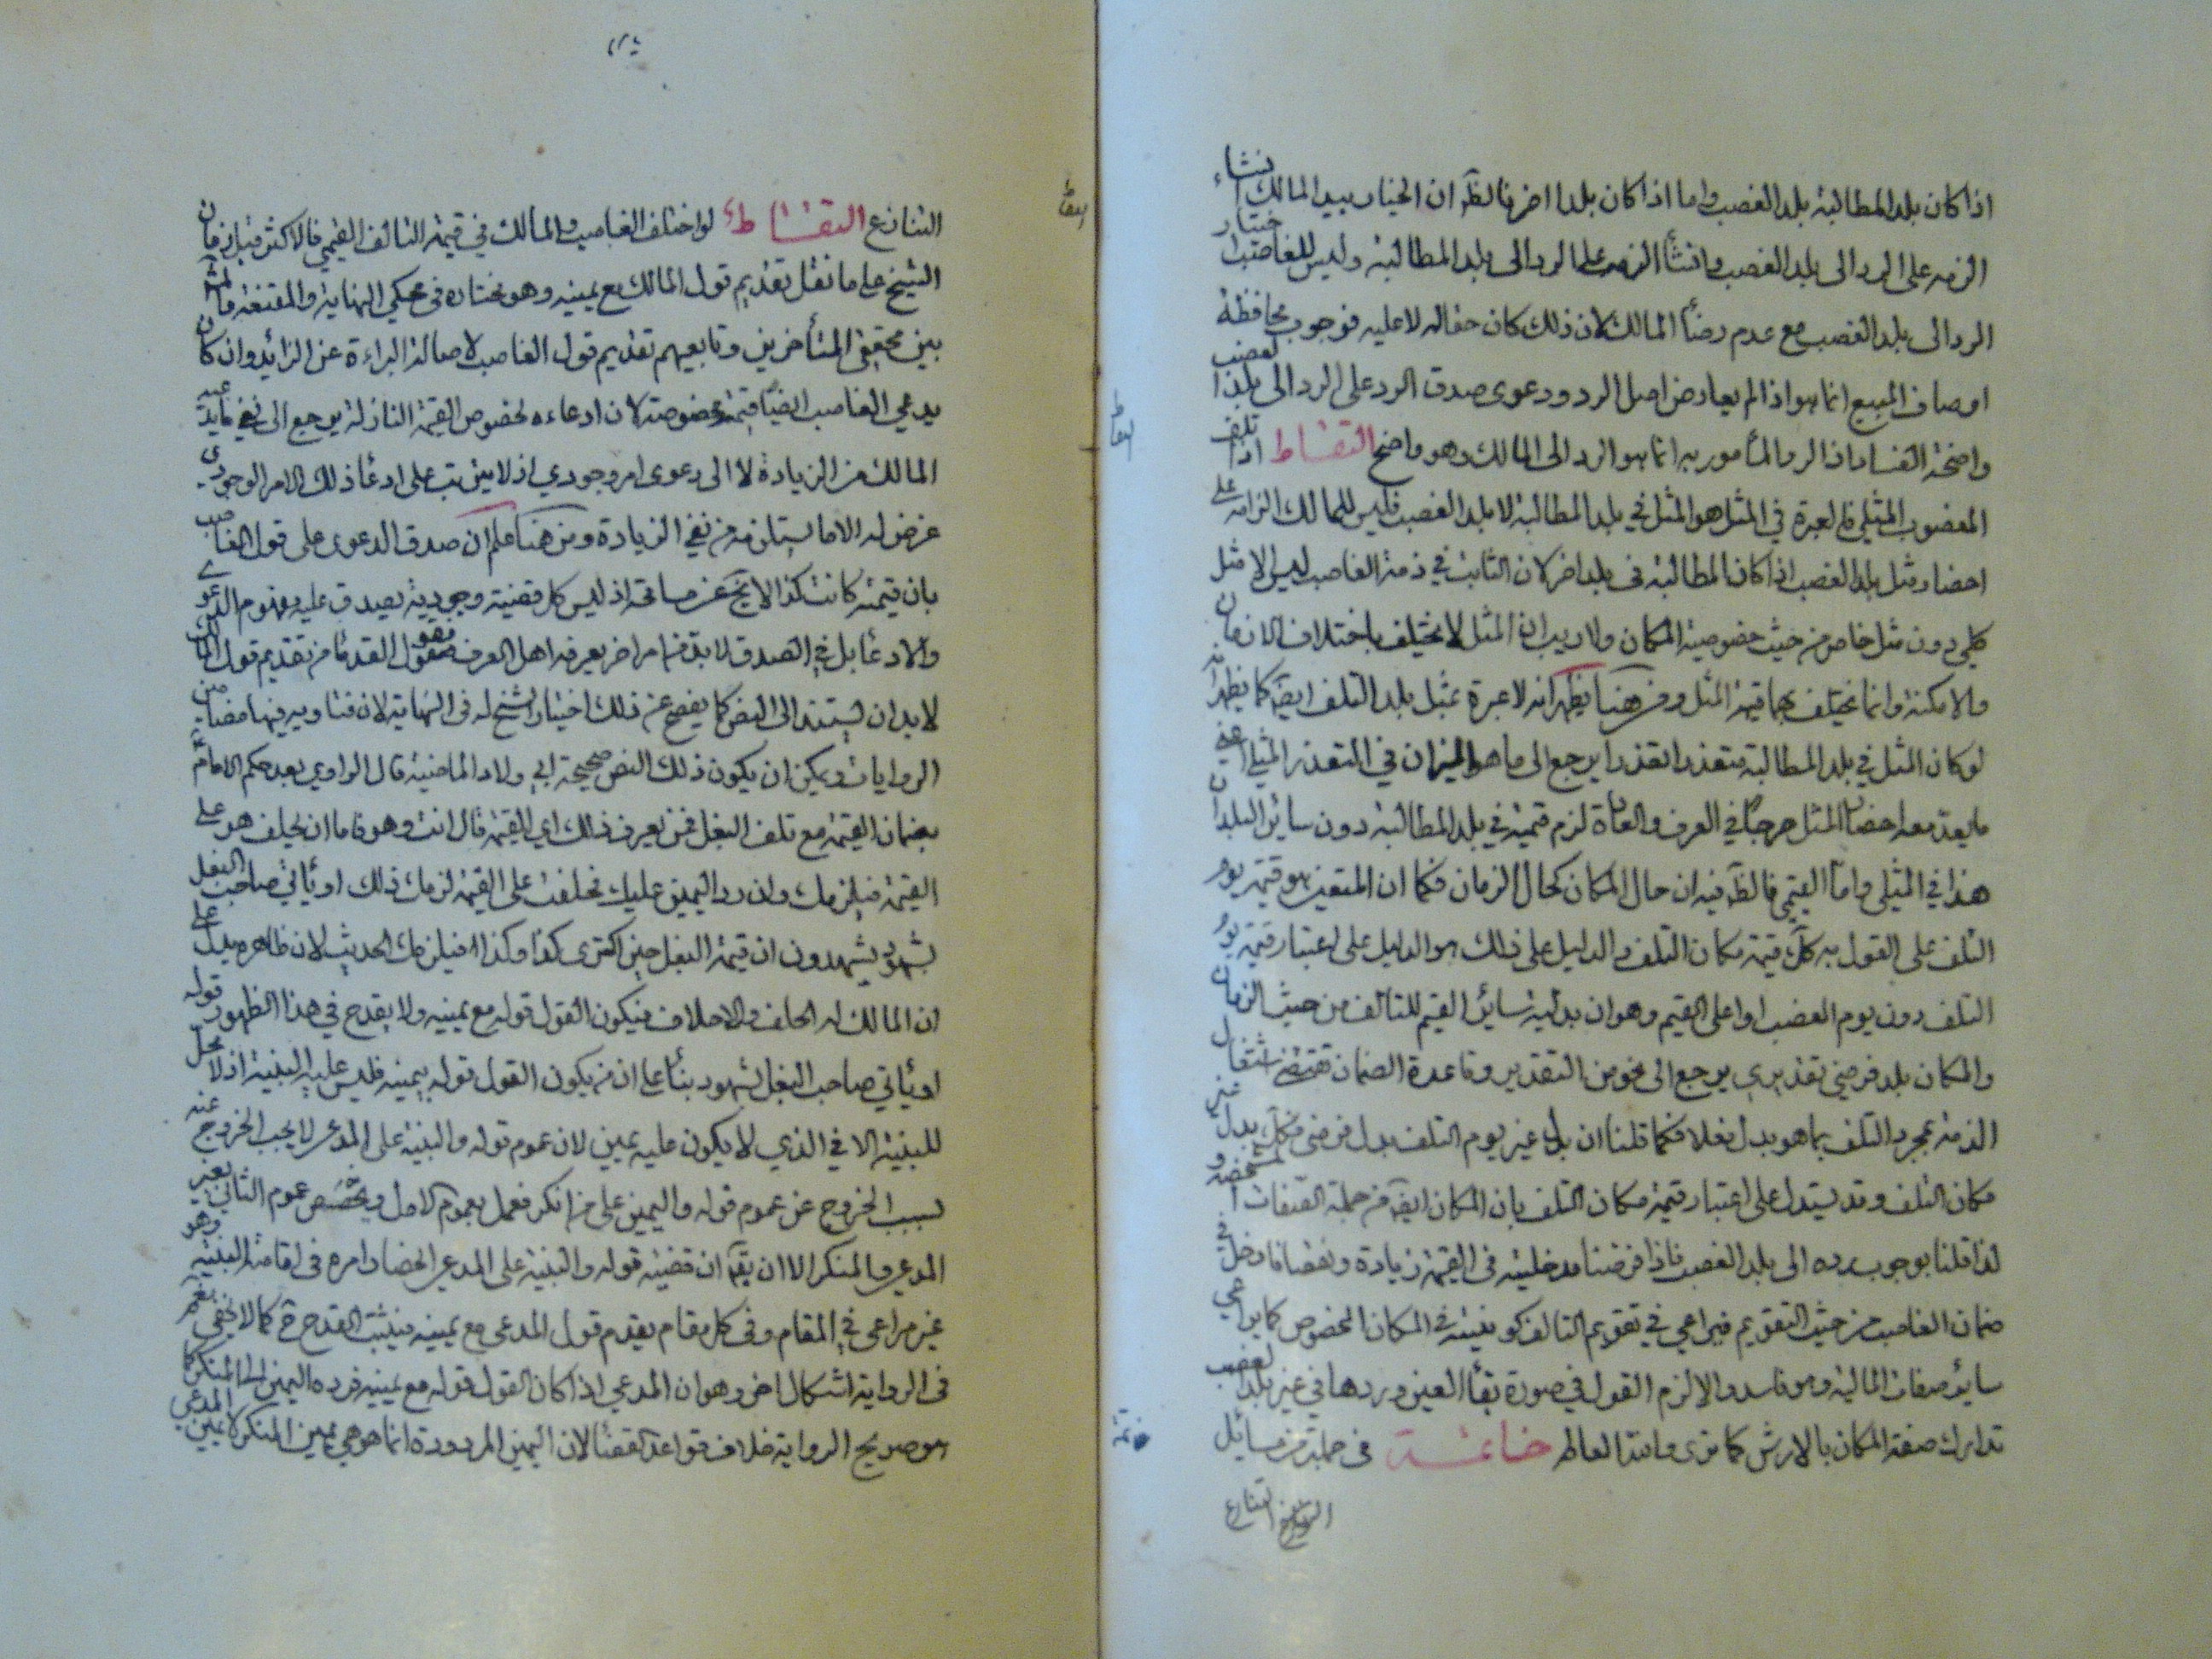 اذا كان بلد المطالبة بلد الغصب واما اذا كان بلدا اخر فالظ ان الخيار بيد المالك انشاء
الزمه على الرد الى بلد الغصب وانشأ الزمه على الرد الى بلد المطالبة وليس للغاصب اختيار
الرد الى بلد الغصب مع عدم رضأ المالك لان ذلك كان حقا له لا عليه فوجوب محافظة
اوصاف المبيع انما هو اذا لم يعارض اصل الرد ودعوى صدق الرد على الرد الى بلد الغصب
واضحة الفساد اذ الرد المأمور به انما هو الرد الى المالك وهو واضح التقاط اذا تلف
المغصوب المثلي فالعبرة في المثل هو المثل في بلد المطالبة لا بلد الغصب فليس للمالك الزامه على
احضار مثل بلد الغصب اذا كان المطالبة في بلد اخر لان الثابت في ذمة الغاصب ليس الا مثل
كلي دون مثل خاص من حيث خصوصية المكان ولا ريب ان المثل لا يختلف باختلاف الازمان
والامكنة وانما يختلف بهما قيمة المثل ومن هنا يظهر انه لا عبرة بمثل بلد التلف ايضا كما يظهر انه
لو كان المثل في بلد المطالبة متعذرا تعذرا يرجع الى ما هو الميزان في التعذر المثلي اعني
ما يعد معه احضار المثل حرجا في العرف والعادة لزم قيمته في بلد المطالبة دون ساير البلدان
هذا في المثلي واما القيمي فالظ فيه ان حال المكان كحال الزمان فكما ان المتعين هو قيمة يوم
التلف على القول به كك قيمة مكان التلف والدليل على ذلك هو الدليل على اعتبار قيمة يوم
التلف دون يوم الغصب او اعلى القيم وهو ان بدلية سائر القيم للتالف من حيث الزمان
والمكان بلد فرضي تقديري يرجع الى نحو من التقدير وقاعدة الضمان تقتضي اشتغال
الذمة بمجرد التلف بما هو بدل فعلا فكما قلنا ان بدل غير يوم التلف بدل فرضي فكك بدل غير
مكان التلف وقد يستدل على اعتبار قيمة مكان التلف بان المكان ايضا من جملة الصفات المشخصة و
لذا قلنا بوجوب رده الى بلد الغصب فاذا فرضنا مدخليته في القيمة زيادة ونقصانا دخل في
ضمان الغاصب من حيث التقويم فيراعي في تقويم التالف كونه في المكان المخصوص كما يراعي
سائر صفات المالية وهو فاسد والا لزم القول في صورة بقأ العين وردها في غير بلد الغصب
تدارك صفة المكان بالارش كما ترى والله العالم خاتمة في جملة من مسائل
التنازع
التنازع التقاط لو اختلف الغاصب والمالك في قيمة التالف القيمي فالاكثر قبل زمان
الشيخ على ما نقل تقديم قول المالك مع يمينه وهو مختاره في محكي النهاية والمقنعة والمشهور
بين محققي المتأخرين وتابعيهم تقديم قول الغاصب لاصالة البراءة عن الزائد وان كان
يدعي الغاصب ايضا قيمة مخصوصة لان ادعاءه لخصوص القيمة النازلة يرجع الى نفي ما يدعيه
المالك من الزيادة لا الى دعوى امر وجودي اذ لا يترتب على ادعأ ذلك الامر الوجودي
غرض له الا ما يستلزمه من نفي الزيادة ومن هنا علم ان صدق الدعوى على قول الغاصب
بان قيمته كانت كذا لا يخ عن مسامحة اذ ليس كل قضية وجودية يصدق عليه مفهوم الدعوى
والادعأ بل في الصدق لابد من امر اخر يعرفه اهل العرف وهو قول القدمأ من تقديم قول المالك
لابد ان يستند الى النص كما يفصح عن ذلك اختيار الشيخ له في النهاية لان فتاويه فيها مضامين
الروايات ويمكن ان يكون ذلك النص صحيحة ابي ولاد الماضية قال الراوي بعد حكم الامام
بضمان القيمة مع تلف البغل فمن يعرف ذلك اي القيمة قال انت وهو فاما ان يحلف هو على
القيمة فيلزمك وان رد اليمين عليك فحلفت على القيمة لزمك ذلك او يأتي صاحب البغل
بشهود يشهدون ان قيمة البغل حين اكترى كذا وكذا فيلزمك الحديث لان ظاهره يدل على
ان المالك له الحلف والاحلاف فيكون القول قوله مع يمينه ولا يقدح في هذا الظهور قوله
او يأتي صاحب البغل بشهود بنأ على ان من يكون القول قوله بيمينه فليس عليه البينة اذ لا محل
للبينة الا في الذي لا يكون عليه يمين لان عموم قوله والبينة على المدعي لا يجب الخروج عنه
بسبب الخروج عن عموم قوله واليمين على من انكر فعمل بعموم الاول ويخصص عموم الثاني بغير
المدعي والمنكر الا ان يق ان قضية قوله والبينة على المدعي انحصار امره في اقامة البينة وهو
غير مراعى في المقام وفي كل مقام يقدم قول المدعي مع يمينه فيثبت القدح ح كما لا يخفى نعم
في الرواية اشكال اخر وهو ان المدعي اذا كان القول قوله مع يمينه فرده اليمين الى المنكر كما
هو صريح الرواية خلاف قواعد القضأ لان اليمين المردودة انما هو هي يمين المنكر لا يمين المدعي